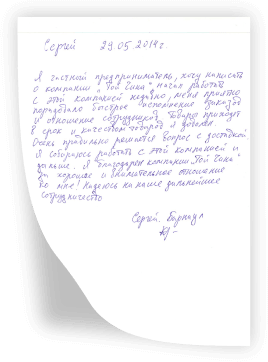 Сергей 29.05.2014г.
Я частный предприниматель, хочу написать
о компании "Той Чина" начал работать
с этой компанией недавно, меня приятно
порадовало быстрое исполнение заказов
и отношение сотрудников. Товары приходят
в срок и качеством товаров я доволен.
Очень правильно решается вопрос с доставкой
Я собираюсь работать с этой компанией и
дальше. Я благодарен компании "Той Чина"
за хорошее и внимательное отношение
ко мне! Надеюсь на наше дальнейшее
сотрудничество
Сергей. Барнаул